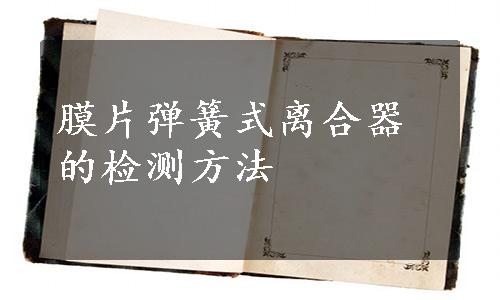 膜片弹簧式离合器
的检测方法